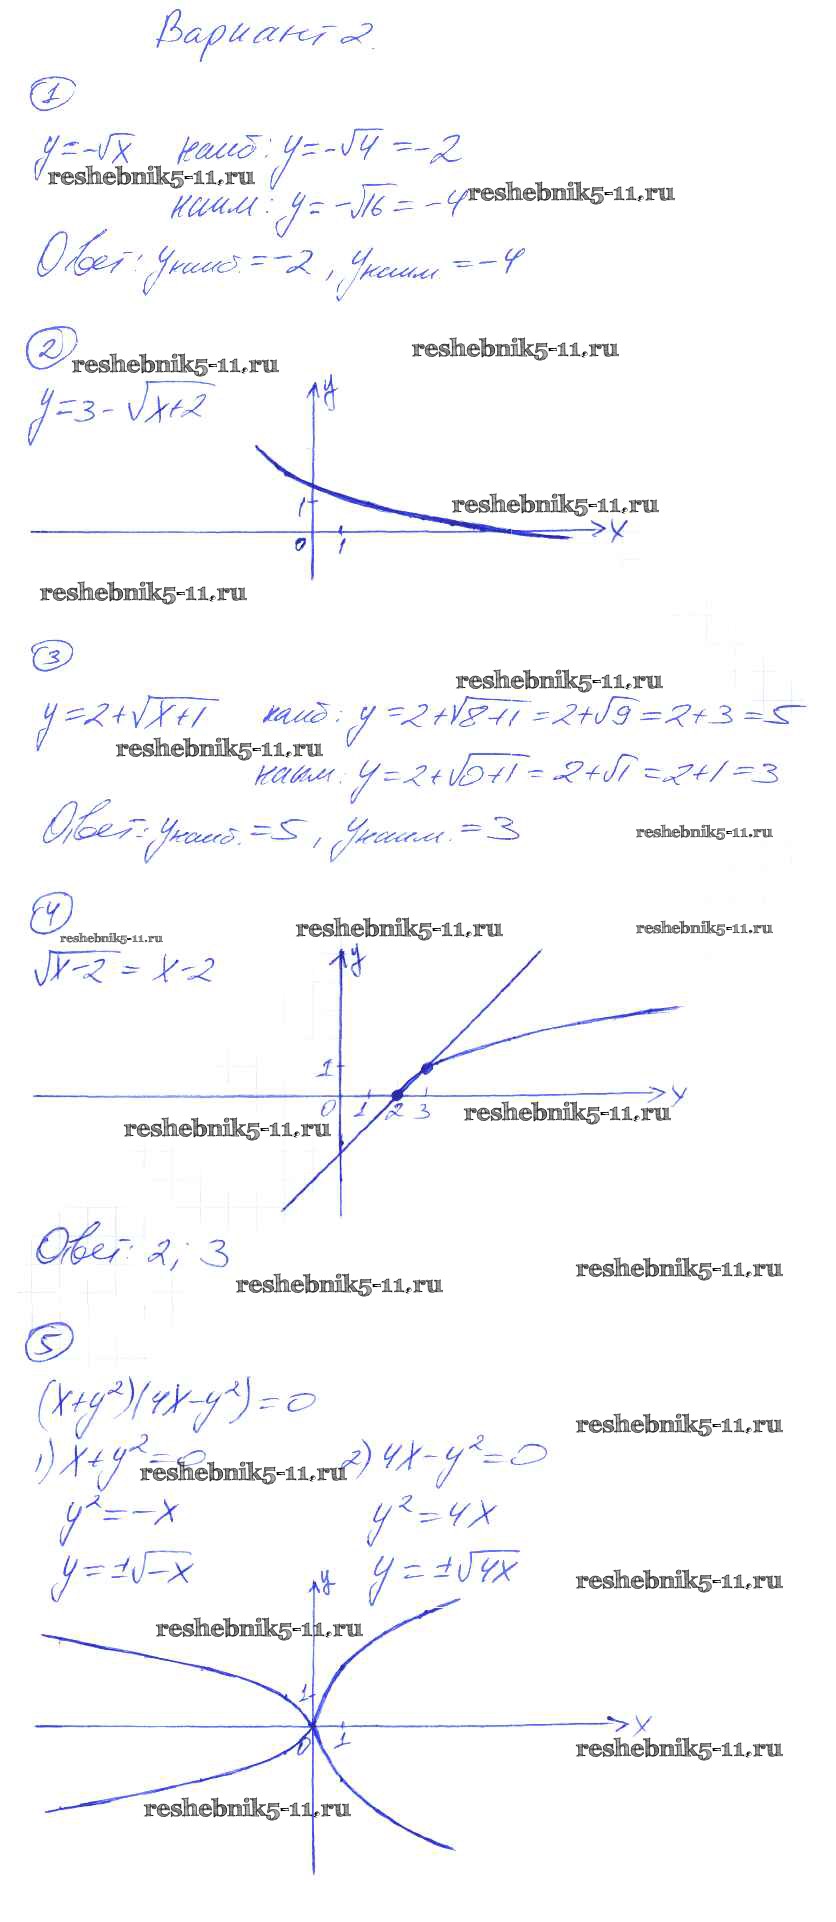 Вариант 2.
1
y=-√x наиб: y=-√4=-2
reshebnik5-11.ru
reshebnik5-11.ru
наим: y=-√16=-4
Ответ: yнаиб.=-2, yнаим.=-4
2
reshebnik5-11.ru
reshebnik5-11.ru
y=3-√(x+2)
y
1
reshebnik5-11.ru
0 1 x
reshebnik5-11.ru
3
reshebnik5-11.ru
y=2+√(x+1) наиб: y=2+√(8+1)=2+√9=2+3=5
reshebnik5-11.ru
наим: y=2+√(0+1)=2+√1=2+1=3
Ответ: yнаиб.=5, yнаим.=3
reshebnik5-11.ru
4
reshebnik5-11.ru
reshebnik5-11.ru
reshebnik5-11.ru
√(x-2)=x-2
y
1
0 1 2 3 x
reshebnik5-11.ru
reshebnik5-11.ru
Ответ: 2; 3
reshebnik5-11.ru
reshebnik5-11.ru
5
(x+y²)(4x-y²)=0
reshebnik5-11.ru
1) x+y²=0 2) 4x-y²=0
reshebnik5-11.ru
y²=-x y²=4x
y=±√-x y=±√4x
reshebnik5-11.ru
y
reshebnik5-11.ru
1
0 1 x
reshebnik5-11.ru
reshebnik5-11.ru